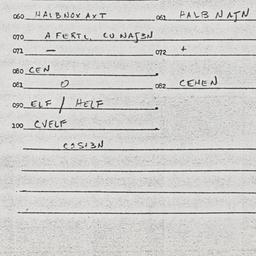 060 HALBNOXAXT 061 HALB NAJN
070 AFERTL, CU NAJBN
071 — 072 +
080 CEN
081 O 082 CEHEN
090 ELF / HELF
100 CVELF